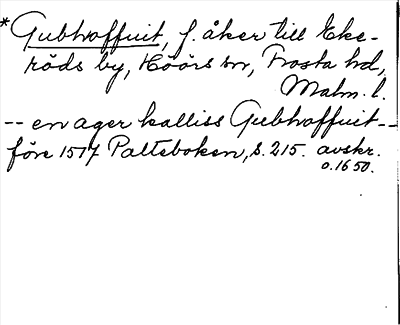 *Gubhroffuit, f. åker till Eke-
röds by, Höörs sn, Frosta hd,
Malm. l.
-- en ager kalliss Gubhroffuit --
före 1517 Palteboken, s. 215. avskr.
o. 1650.